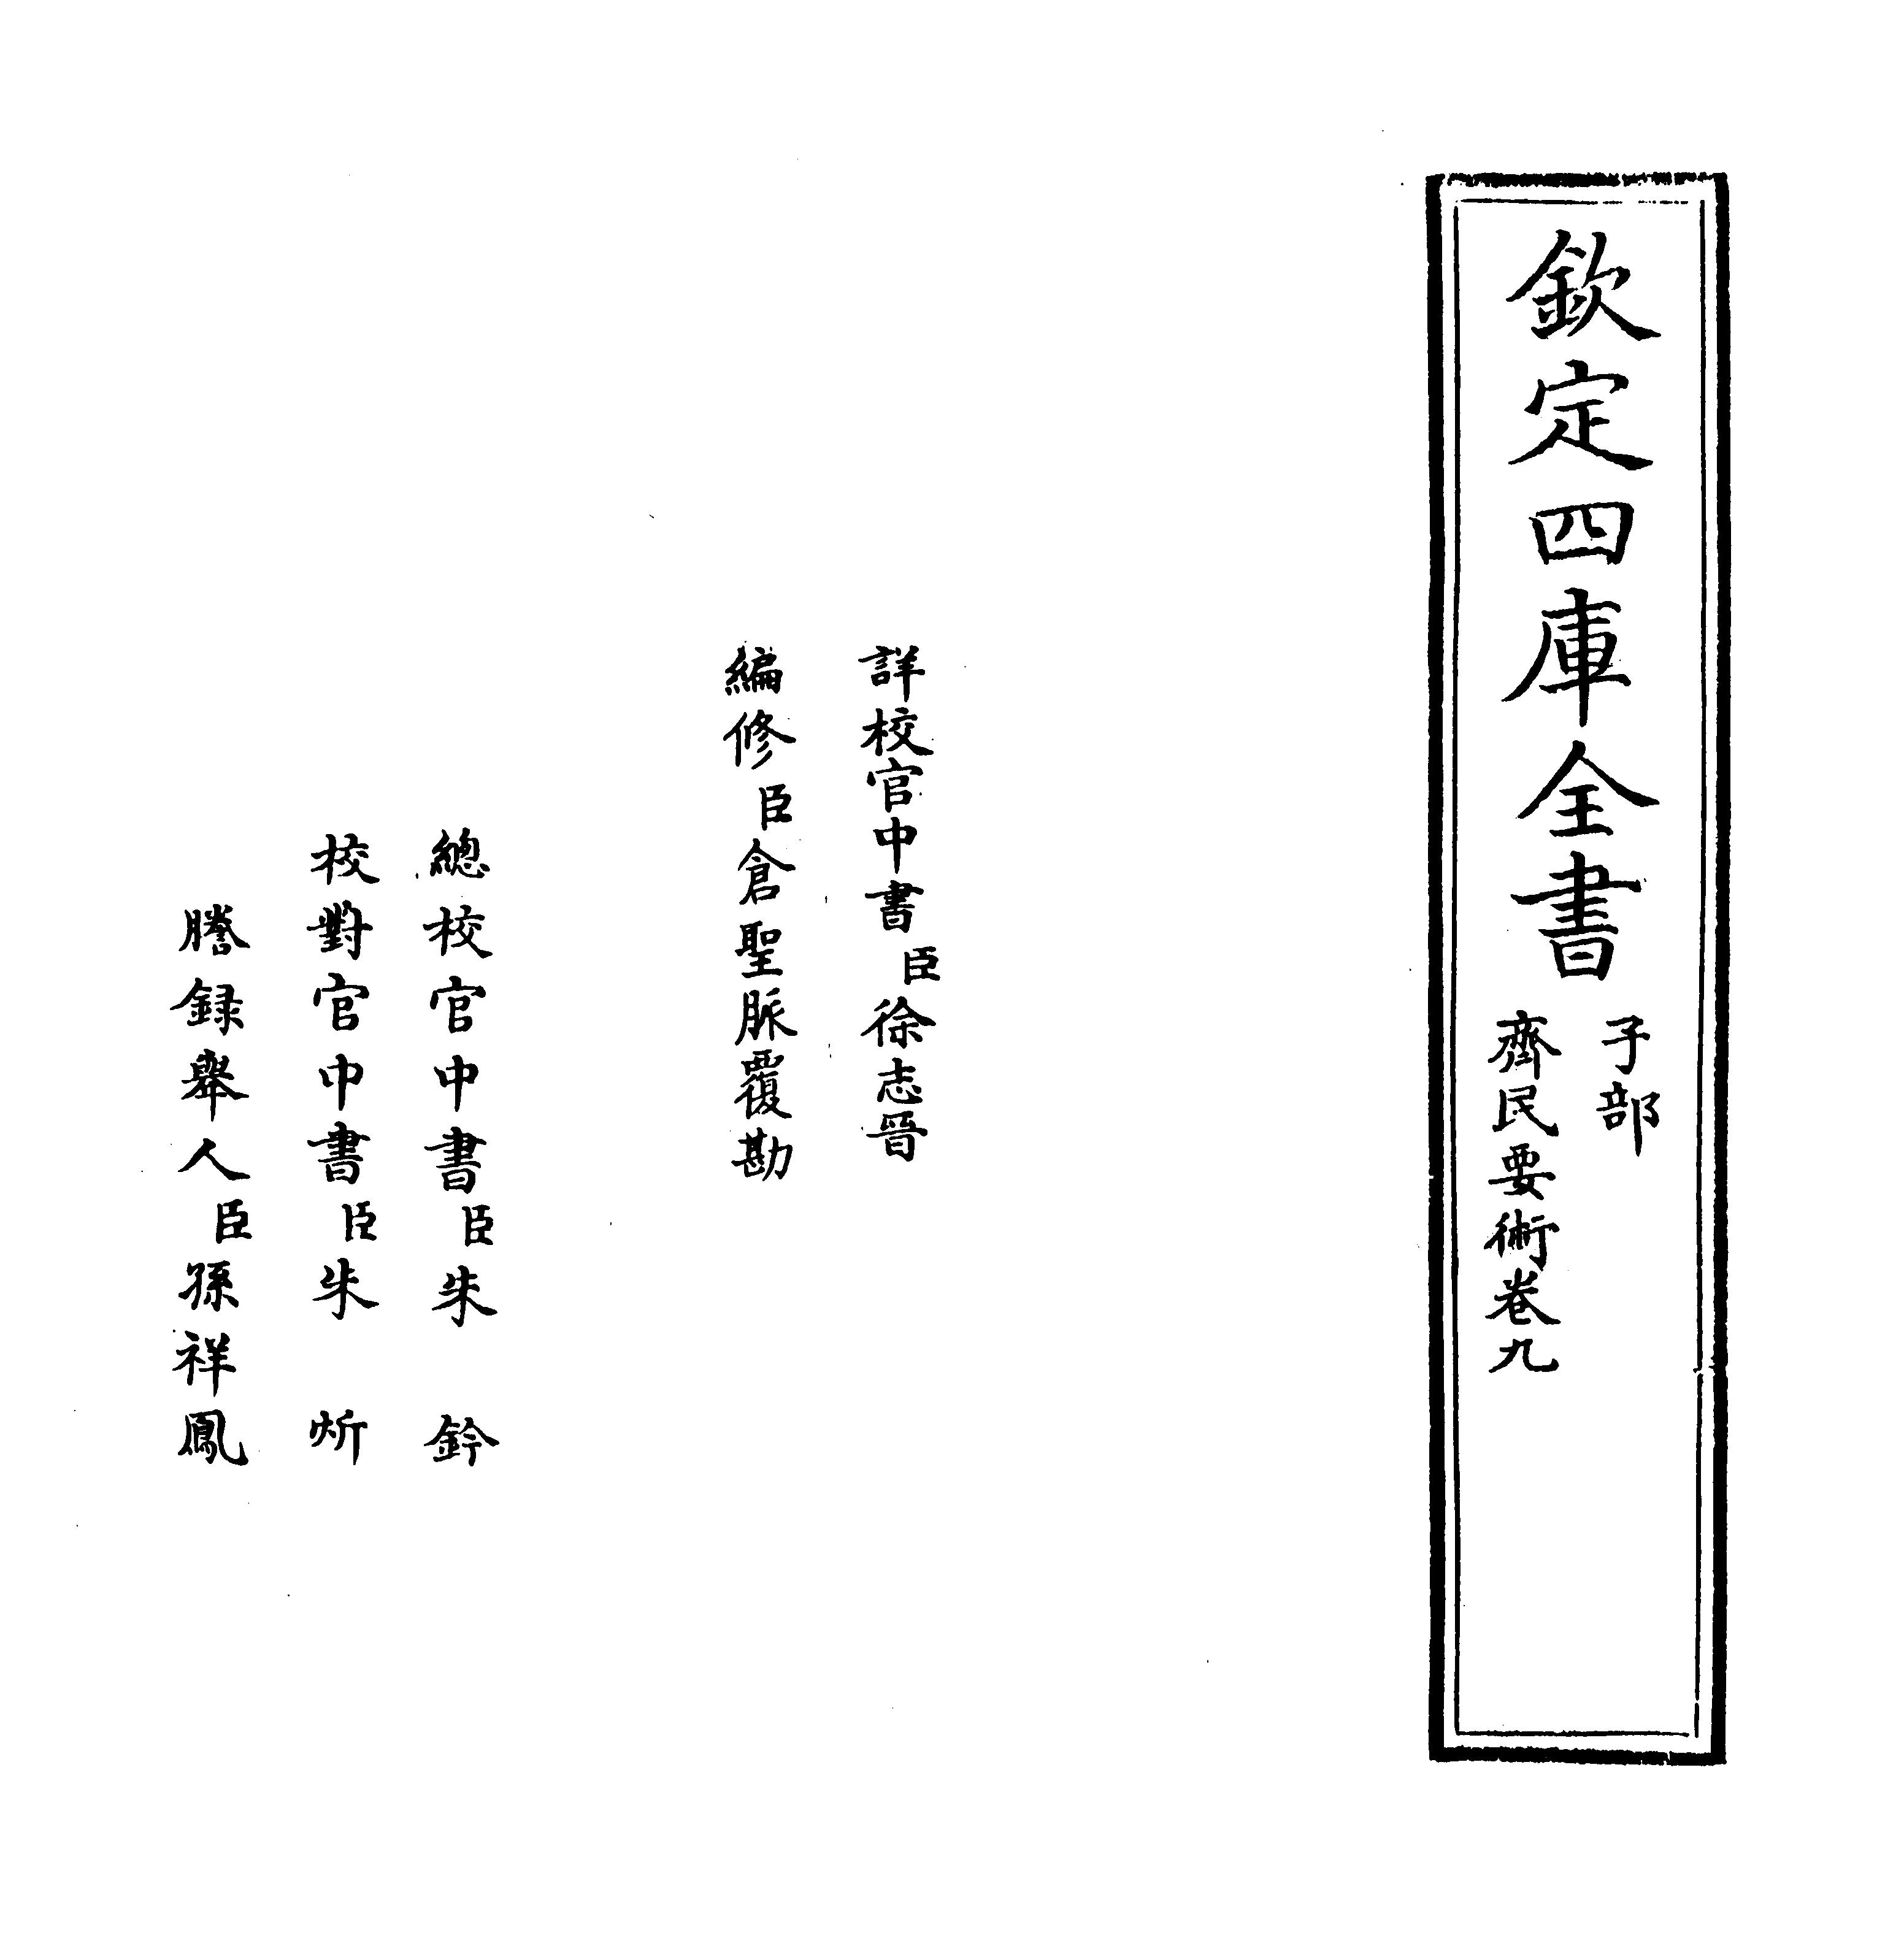 欽定四庫全書
子部
齊民要術卷九
詳校官中書臣徐志晉
編修臣倉聖脈覆勘
總校官中書臣朱鈐
校對官中書臣朱炘
謄録舉人臣孫祥鳳